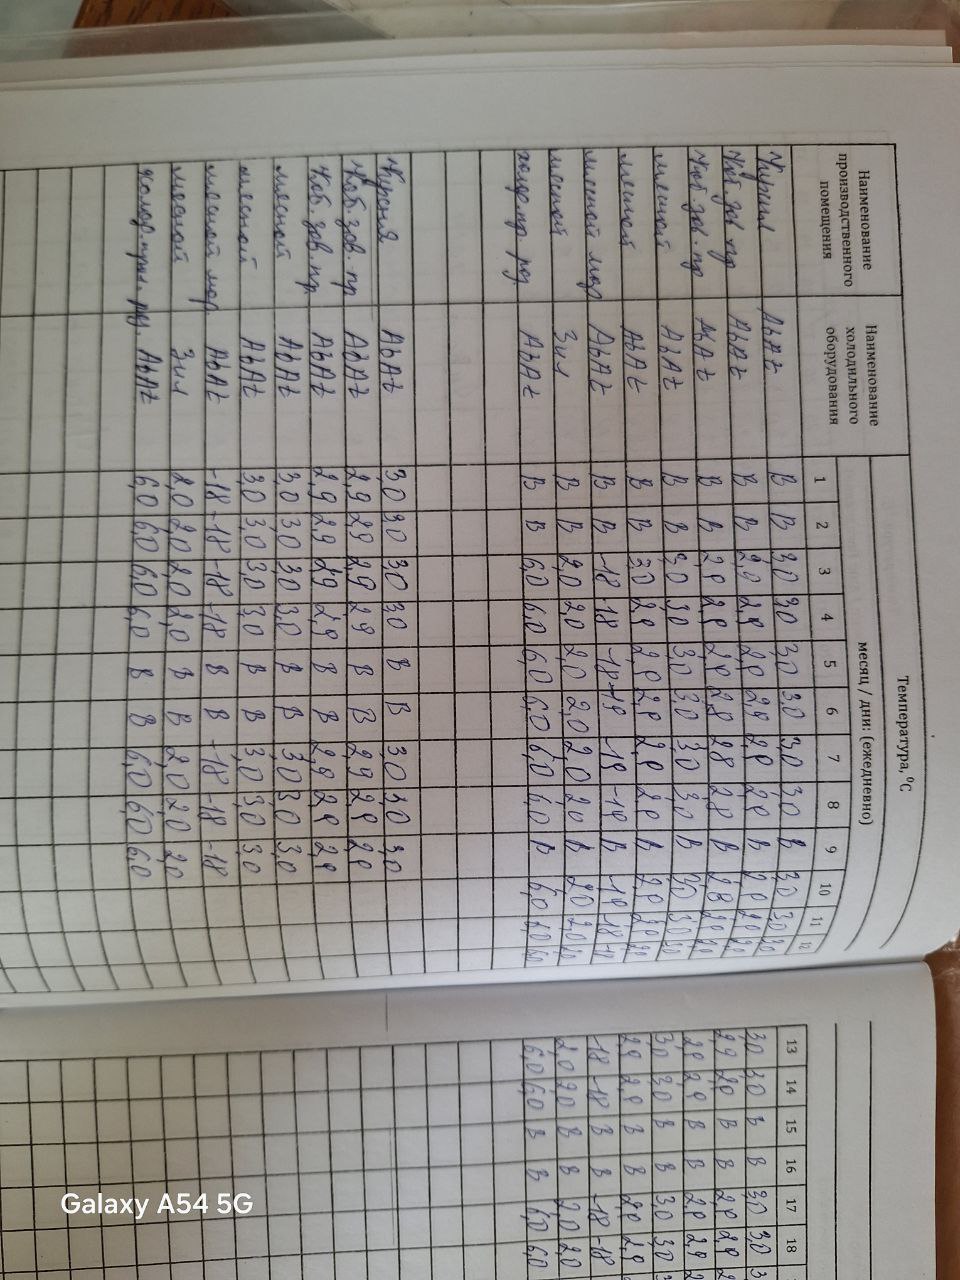 Температура, ⁰С
Наименование производственного помещения
Наименование холодильного оборудования
месяц / дни: (ежедневно)
1 2 3 4 5 6 7 8 9 10 11 12
Abat В В 3,0 3,0 3,0 3,0 3,0 3,0 В 3,0 3,0 3,0
Abat В В 2,9 2,9 2,9 2,9 2,9 2,9 В 2,9 2,9 2,9
Abat В В 2,9 2,9 2,9 2,9 2,8 2,8 В 2,8 2,9 2,9
мясной Abat В В 3,0 3,0 3,0 3,0 3,0 3,0 В 3,0 3,0 3,0
мясной Abat В В 3,0 2,9 2,9 2,9 2,9 2,9 В 2,9
мясной мор Abat В В -18 -18 -18 -19 -19 -19 В -19 -18
мясной Зил В В 2,0 2,0 2,0 2,0 2,0 2,0 В 2,0 2,0 2,0
Abat В В 6,0 6,0 6,0 6,0 6,0 6,0 В 6,0 6,0 6,0
Abat 3,0 3,0 3,0 3,0 В В 3,0 3,0 3,0
зав. пр Abat 2,9 2,9 2,9 2,9 В В 2,9 2,9 2,9
зав. пр. Abat 2,9 2,9 2,9 2,9 В В 2,9 2,9 2,9
мясной Abat 3,0 3,0 3,0 3,0 В В 3,0 3,0 3,0
мясной Abat 3,0 3,0 3,0 3,0 В В 3,0 3,0 3,0
мясной мор. Abat -18 -18 -18 -18 В В -18 -18 -18
мясной Зил 2,0 2,0 2,0 2,0 В В 2,0 2,0 2,0
Abat 6,0 6,0 6,0 6,0 В В 6,0 6,0 6,0
13 14 15 16 17 18
3,0 3,0 В В 3,0 3,0
2,9 2,9 В В 2,9 2,9
2,9 2,9 В В 2,9 2,9
3,0 3,0 В В 3,0 3,0
2,9 2,9 В В 2,9 2,9
-18 -18 В В -18 -18
2,0 2,0 В В 2,0 2,0
6,0 6,0 В В 6,0 6,0
Galaxy A54 5G